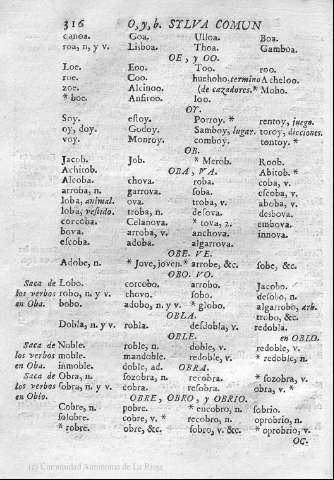 316 O, y, b. SYLVA COMUN
canoa. Goa. Ulloa. Boa.
roa, n, y v. Lisboa. Thoa. Gamboa.
OE, y OO.
Loe. Eoo. Too. roo.
roe. Coo. huchoho. termino Acheloo.
zoe. Alcinoo. (de cazadores. * Moho.
* boe. Anfiroo. loo.
OY.
Soy. eſtoy. Porroy. * rentoy, juego.
oy, doy. Godoy. Samboy, lugar. toroy, dicciones.
voy. Monroy. comboy. tentoy. *
OB.
Jacob. Job. * Merob. Roob.
Achitob. OBA, VA. Abitob. *
Alcoba. chova. roba. coba, v.
arroba, n. garrova. ſoba. eſcoba, v.
loba, animal. ova. troba, v. aboba, v.
loba, veſtido. troba, n. deſova. desbova.
corcoba. Celanova. * tova, 2. emboba.
bova. arroba, v. anchova. innova.
eſcoba. adoba. algarrova.
OBE. VE.
Adobe, n. * Jove, joven. * arrobe, &c. ſobe, &c.
OBO. VO.
Saca de Lobo. corcobo. arrobo. Jacobo.
los verbos robo, n. y v. chovo. ſobo. deſobo, n.
en Oba. bobo. adobo, n, y v. * globo. algarrobo, arb.
OBLA. trobo, &c.
Dobla, n, y v. robla. deſdobla, v. redobla.
OBLE. en OBLO.
Saca de Noble. roble, n. doble, v. redoble, v.
los verbos moble. mandoble. redoble, v. * redoble, n.
en Oba. inmoble. doble, ad. OBRA.
Saca de Obra, n. ſozobra, n. recobra. * ſozobra, v.
los verbos ſobra, n, y v. cobra. reſobra. obra, v. *
en Oblo. OBRE, OBRO, y OBRIO.
Cobre, n. pobre. * encobro, n. ſobrio.
ſolobre. cobre, v. * recobro, n. oprobrio, n.
* robre. obre, &c. ſobro, v. &c. * oprobrio, v.
OC.
(c) Comunidad Autónoma de La Rioja